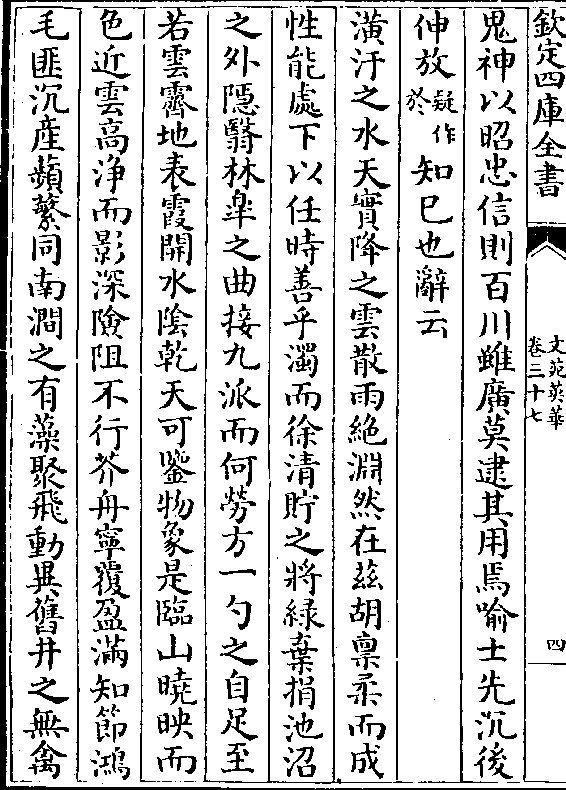 欽定四庫全書
文苑英華
卷三十七
四
鬼神以昭忠信則百川雖廣莫逮其用焉喻士先沉後
伸放疑作於知巳也辭云
潢汙之水天實降之雲散雨絶淵然在茲胡稟柔而成
性能處下以任時善乎濁而徐清貯之將緑棄捐池沼
之外隱翳林臯之曲接九派而何勞方一勺之自足至
若雲霽地表霞開水陰乾天可鑒物象是臨山曉映而
色近雲高浄而影深險阻不行芥舟寧覆盈滿知節鴻
毛匪沉産蘋蘩同南澗之有藻聚飛動異舊井之無禽